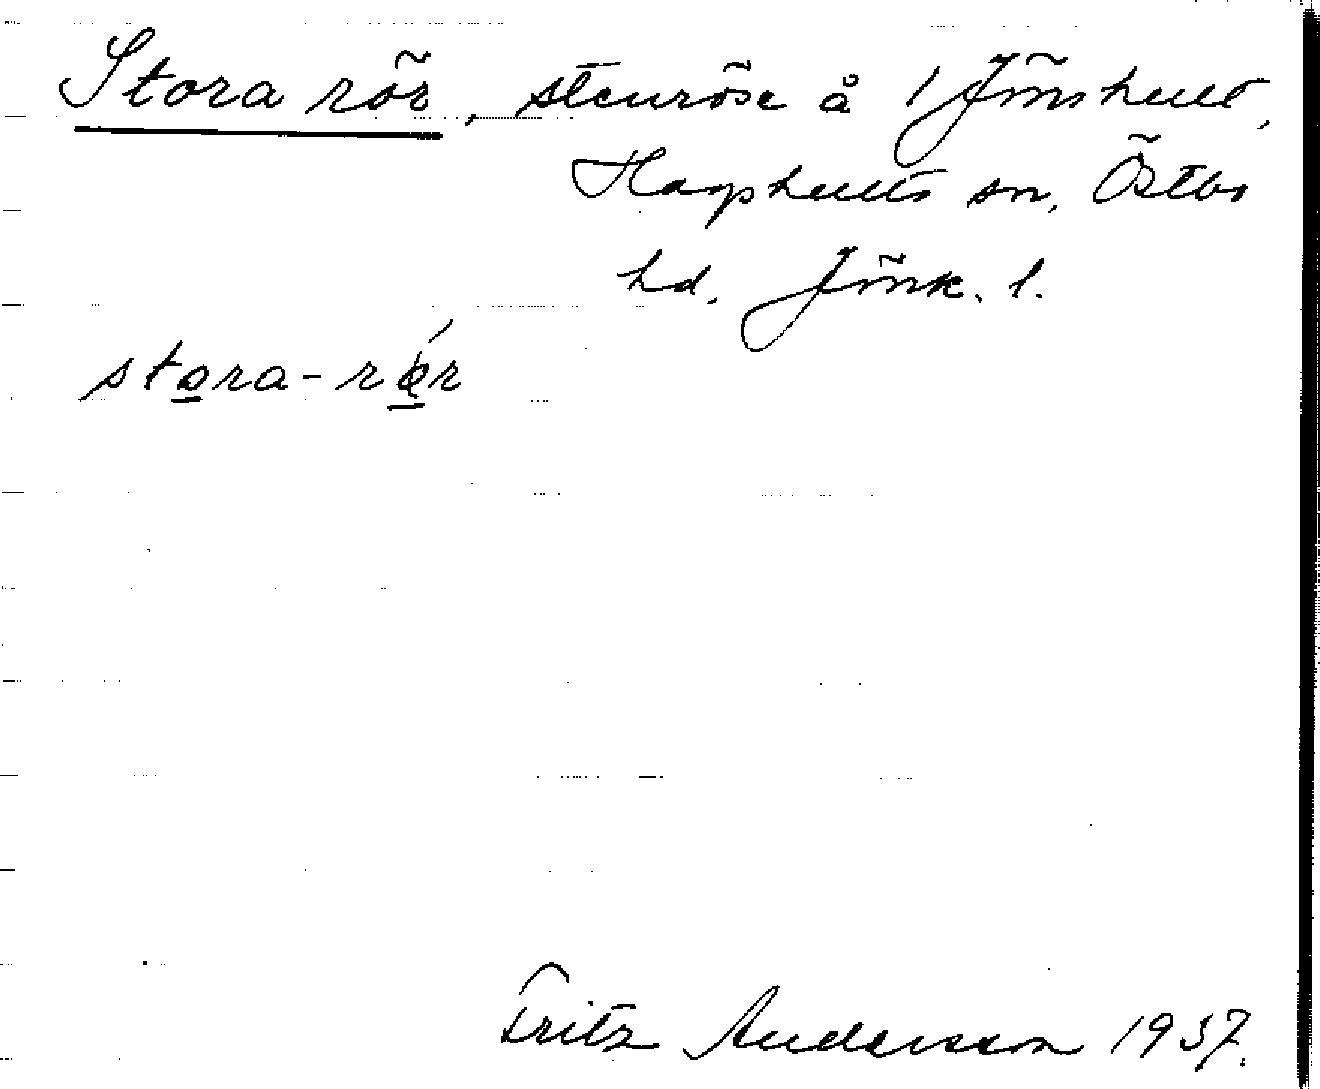 Stora rör, stenröse å 1 Jönshult,
Hagshults sn, Östbo
hd, Jönk. l.
stora-rǿr
Fritz Andersson 1937.